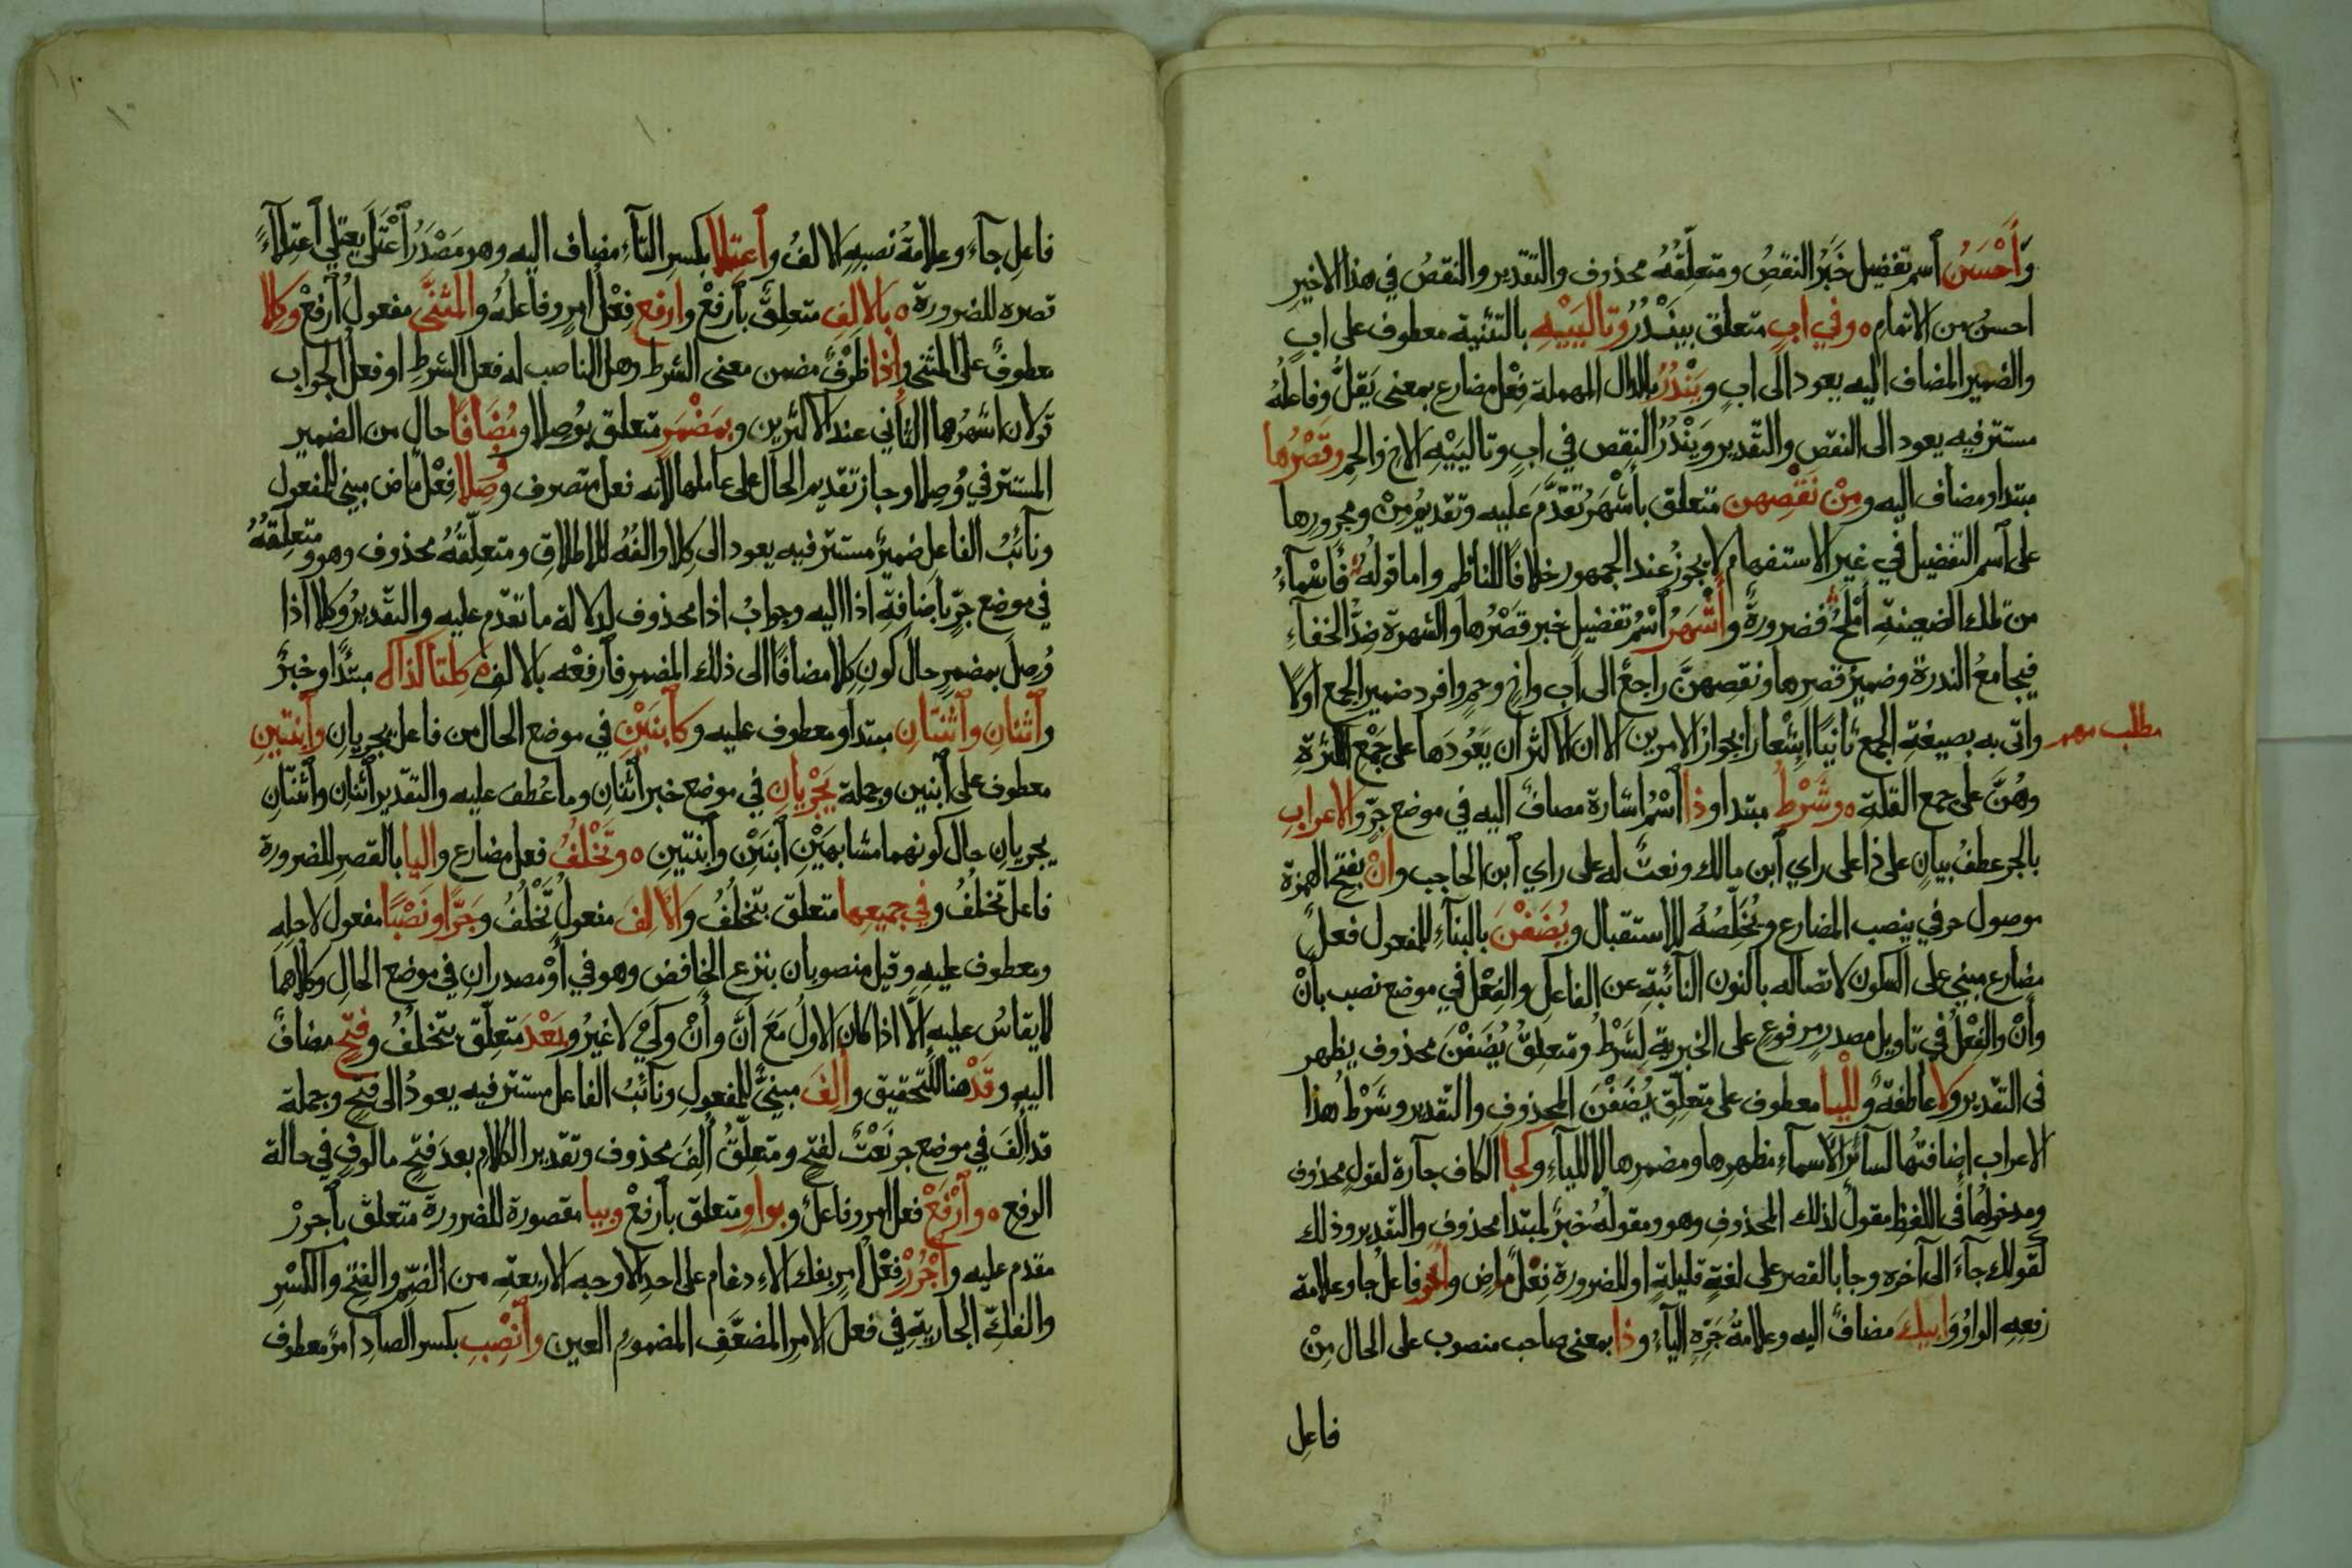 وَأَحْسَنُ اسم تفضيل خَبَرُ النقصُ ومتعلِّقُهُ محذوف والتقدير والنقصُ في هذا الاخيرِ
احسنُ من الاتمامِ ٥ وفي ابٍ متعلق بيَنْدُرُ وتالِيَيْهِ بالتثنية معطوف على ابٍ
والضمير المضاف اليه يعود الى ابٍ ويَنْدُرُ بالدال المهملة فِعْل مضارع بمعنى يَقلُّ وفاعلُهُ
مستتر فيه يعود الى النقص والتقدير ويَنْدُرُ النقص في ابٍ وتالِيَيْهِ الاخ والحم وقَصْرُها
مبتدا ومضاف اليه ومِنْ نَقْصِهِن متعلق بأَشْهَرُ تقدَّمَ عَلَيه وتقديمُ مِنْ ومجرورها
على اسم التفضيل في غير الاستفهام لا يجوزُ عند الجمهور خلافًا للناظم واما قولُهُ فأَسْمآءُ
من تلك الضعينةِ أمْلَحُ فضرورةً وأَشْهَرُ اسْمُ تفضيل خبر قَصْرُها والشهرة ضِدُّ الخفآءِ
فيجامعُ الندرة وضميرُ قصرها ونقصهنَّ راجعٌ الى ابٍ واخٍ وحمٍ وافرد ضمير الجمع اولًا
واتى به بصيغة الجمع ثانيًا إشعارًا بجواز الامرين الا ان الاكثر ان يَعُودَها على جَمْع الكثرةِ
مطلب مهم
وهُنَّ على جمع القلة ٥ وشَرْطُ مبتدا وذا اسْمُ اشارة مضافٌ اليه في موضع جرٍّ والاعرابِ
بالجر عطفُ بيانٍ على ذا على راي ابن مالك ونعتٌ له على راي ابن الحاجب وأنْ بفتح الهمزة
موصول حرفي ينصب المضارع ويُخَلِّصُهُ للاستقبال ويُضَفْنَ بالبنآءِ للمفعول فعلٌ
مضارع مبني على السكون لاتصاله بالنون النآئبةِ عن الفاعل والفِعْل في موضع نصب بأنْ
وأنْ والفِعْلُ في تاويل مصدرٍ مرفوعٍ على الخبرية لِشَرْطُ ومتعلِّقُ يُضَفْنَ محذوف يظهر
في التقدير ولا عاطفةٌ ولِلْيا معطوف على متعلّقِ يُضَفْنَ المحذوف والتقدير وشَرْطُ هذا
الاعراب إضافتُها لسآئر الاسمآءِ مظهرها ومضمرها لا لليآءِ وكَجا الكاف جآرة لقولٍ محذوف
ومدخولُها في اللفظ مقولٌ لذلك المحذوف وهو ومقولُهُ خبرٌ لمبتدا محذوف والتقدير وذلك
كقولك جآءَ الى آخره وجا بالقصر على لغةٍ قليلةٍ او للضرورة فِعْلٌ ماضٍ واخو فاعلُ جا وعلامة
رفعِهِ الواوُ وَابيكَ مضافٌ اليه وعلامةُ جَرِّهِ اليآءُ وذا بمعنى صاحب منصوب على الحال مِنْ
فاعل
فاعل جآءَ وعلامةُ نصبهِ الالفُ واعتِلا بكسرِ التآءِ مضاف اليه وهو مَصْدَرُ اعْتَلَى يعتلي اعتلآءً
قصره للضرورة ٥ بالالِفِ متعلِّقٌ بارفعْ وارفع فِعْلُ امرٍ وفاعلهُ والمثنَّى مفعولُ ارفعْ وكِلا
معطوفٌ على المثنى واذا ظرْفٌ مضمن معنى الشرط وهل الناصب له فعل الشرطِ او فعل الجواب
قولان اشهرُها الثاني عند الاكثرين وبمُضْمَرٍ متعلق بوُصِلا ومُضَافًا حال من الضمير
المستتر في وُصِلا وجاز تقديم الحال على عاملها لانه فعل متصرف ووُصِلا فِعْلٌ ماض مبني للمفعول
ونآئبُ الفاعل ضميرٌ مستتر فيه يعود الى كِلا والفُهُ للاطلاقِ ومتعلِّقُهُ محذوف وهو ومتعلِّقُهُ
في موضع جرٍّ باضافةِ اذا اليه وجوابُ اذا محذوف لدلالة ما تقدّم عليه والتقديرُ وكلا اذا
وُصِلَ بمضمرٍ حال كونِ كِلا مضافًا الى ذلك المضمر فارفعْه بالالف ٥ كِلتا كذاك مبتدًا وخبرٌ
واثنانِ واثنتانِ مبتدا ومعطوف عليه وكابنَيْنِ في موضع الحال من فاعل يجريانِ وابنتينِ
معطوف على ابنين وجملة يَجْريانِ في موضع خبر اثنانِ وما عُطف عليه والتقدير اثنانِ واثنتانِ
يجريانِ حال كونهما مشابهَيْنِ ابنَيْنِ وابنتينِ ٥ وتَخْلُفُ فعل مضارع واليا بالقصرِ للضرورة
فاعل تخلُفُ وفي جميعِها متعلق بتخلُفُ والالِفَ مفعولُ تخْلُفُ وجَرًّا ونَصْبًا مفعول لاجلهِ
ومعطوف عليهِ وقيل منصوبان بنزع الخافض وهو في أوْ مصدرانِ في موضع الحالِ وكلاهما
لا يقاسُ عليهِ الَّا اذا كان الاولُ مَعَ أنَّ وأنْ وكَيْ لا غيرُ وبَعْدَ متعلّق بتخلُفُ وفتحٍ مضافٌ
اليه وقَدْ هنا للتحقيق وأُلِفَ مبنيٌّ للمفعولِ ونآئبُ الفاعل مستتر فيه يعودُ الى فتحٍ وجملة
قد أُلِفَ في موضع جر نَعْتٌ لفتحٍ ومتعلِّقُ أُلِفَ محذوف وتقدير الكلام بعدَ فتحٍ مالوفٍ في حالة
الرفع ٥ وارْفَعْ فعل امر وفاعلٌ وبواوٍ متعلق بارفعْ وبيا مقصورة للضرورة متعلّق باجررْ
مقدم عليه واجْرُرْ فِعْل امرٍ بفك الادغام على احد الاوجه الاربعةِ من الضمِّ والفتحِ والكسْرِ
والفكِّ الجاريةِ في فعل الامر المضعَّف المضمومِ العين وانْصِبِ بكسر الصادِ امرٌ معطوف